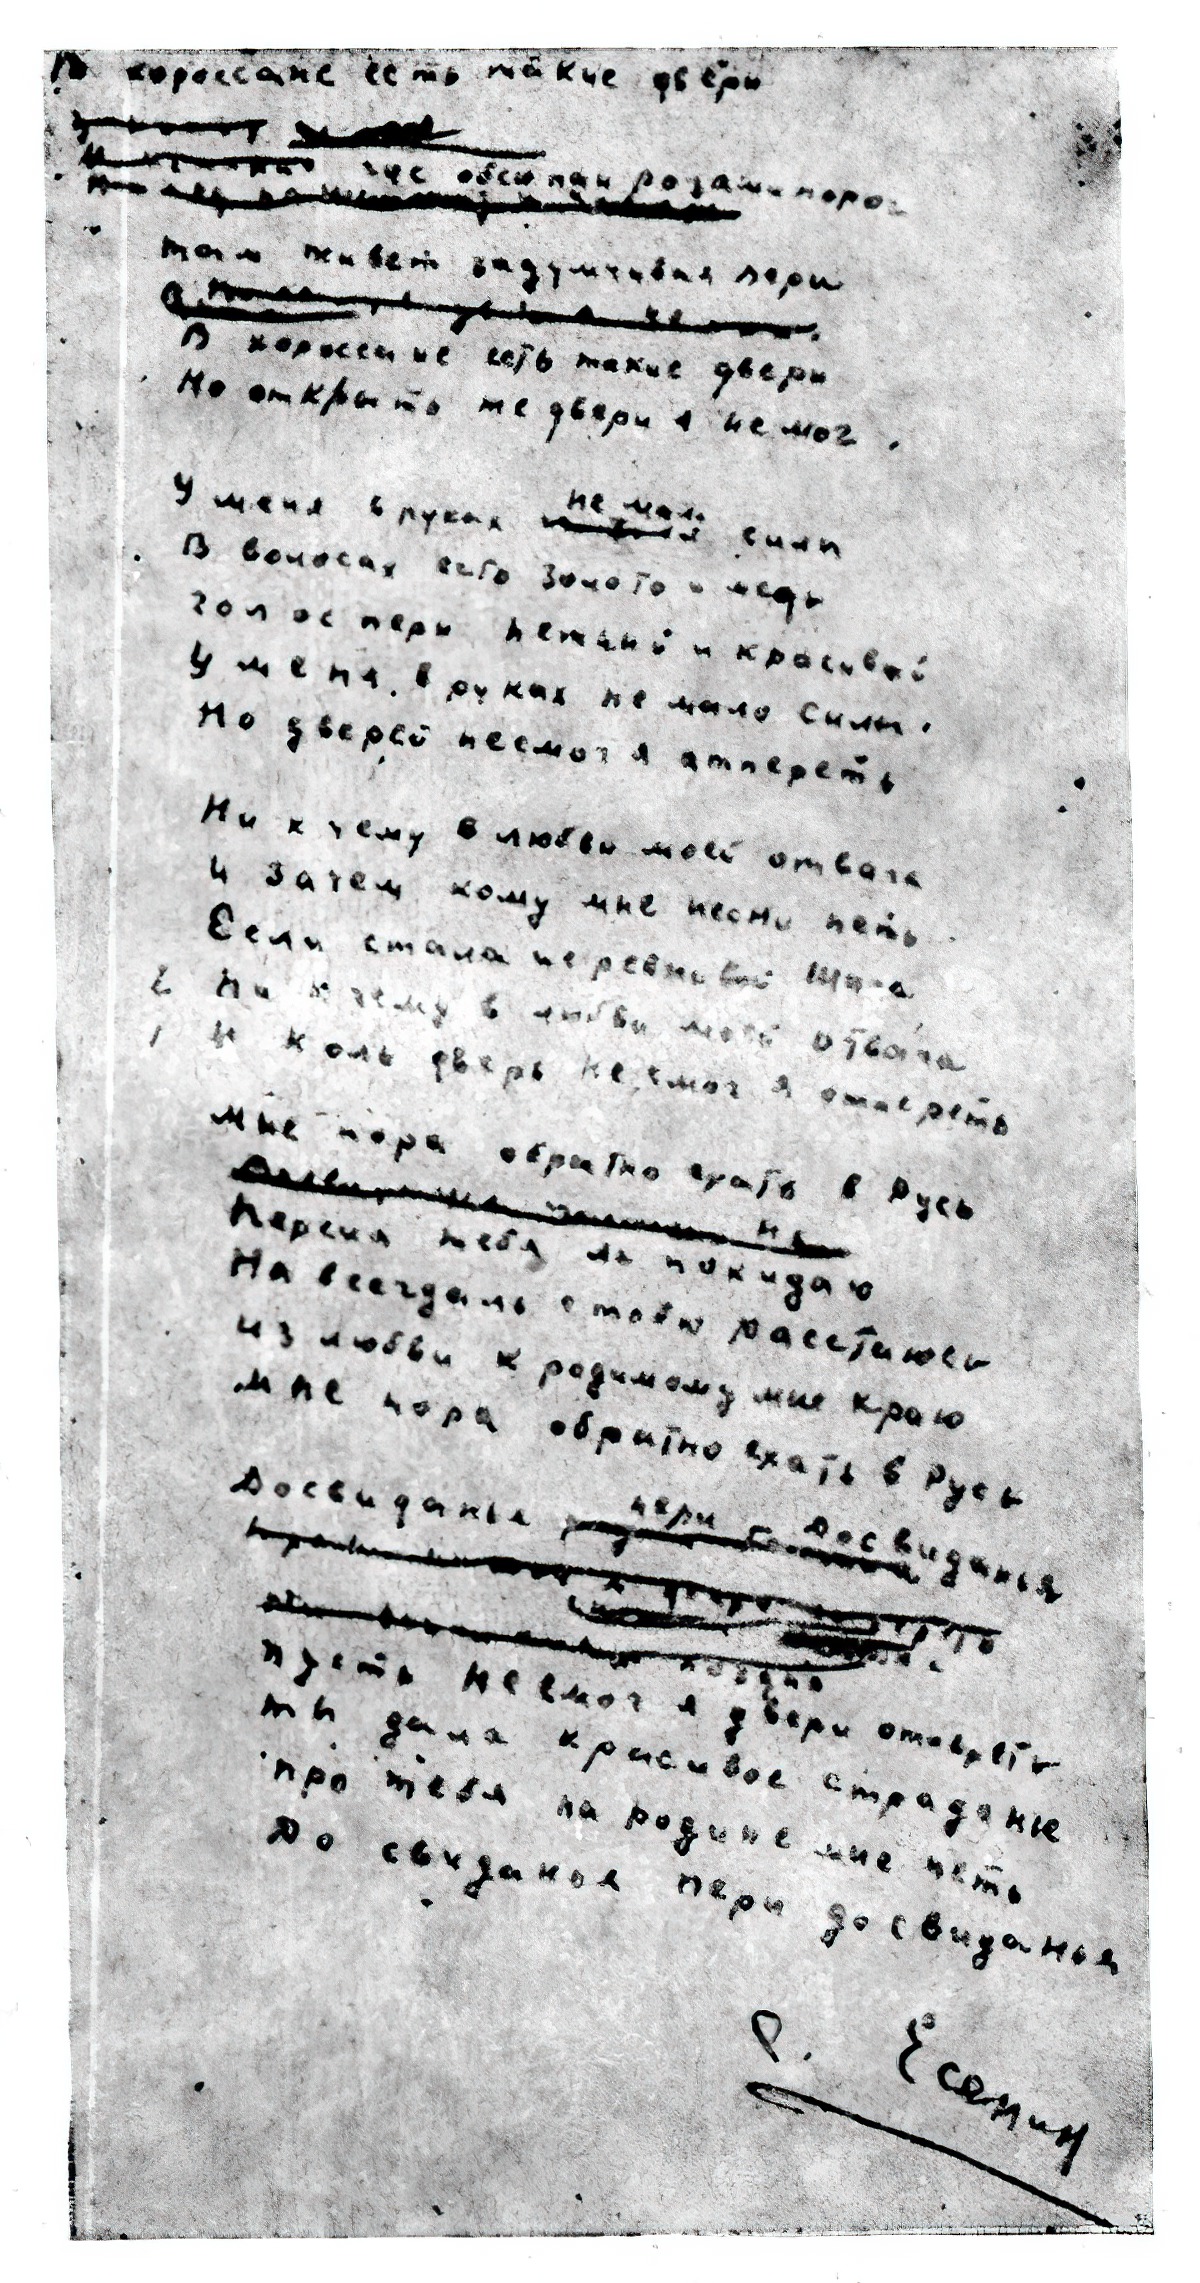 В хороссане есть такие двери
где обсыпан розами порог
там живет задумчивая пери
В хороссане есть такие двери
Но открыть те двери я не мог.
У меня в руках не мало силы
В волосах есть золото и медь
голос пери нежный и красивый
У меня в руках не мало силы.
Но дверей несмог я атпереть
Ни к чему в любви моей отвага
И зачем кому мне песни петь
Если стала неревнивой Шага
2 Ни к чему в любви моей отвага
1 И коль дверь несмог я отпереть
Мне пора обратно ехать в Русь
Персия тебя ль покидаю
На всегдаль с тобою расстаюсь
Из любви к родимому мне краю
Мне пора обратно ехать в Русь
Досвиданья пери Досвиданья
пусть несмог я двери отпереть
ты дала красивое страданье
про тебя на родине мне петь
До свиданья пери до свиданья
С. Есенин